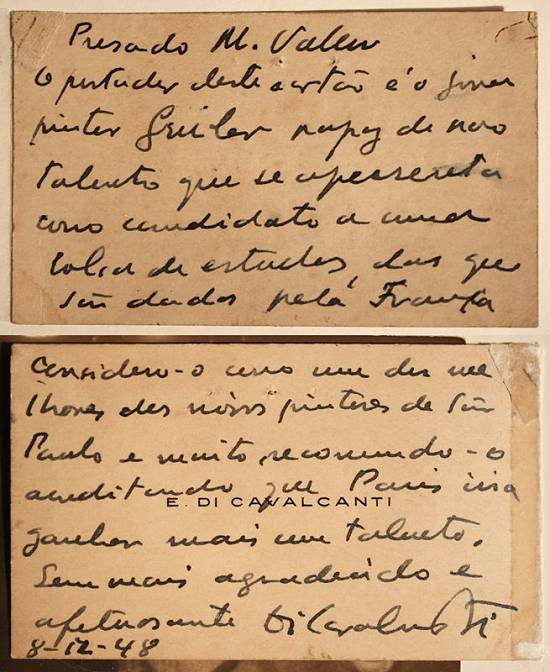 Presado M. Valeur
O portador deste cartão é o jovem
pintor rapaz de raro
talento que se apresenta
como candidato a uma
bolsa de estudos, das que
são dadas pela França
considero-o como um dos me
lhores dos novos pintores de São
Paulo e muito recomendo-o
acreditando que Paris irá
E. DI CAVALCANTI
ganhar mais um talento.
Sem mais agradecido e
afetuosante Di Cavalcanti
8-12-48